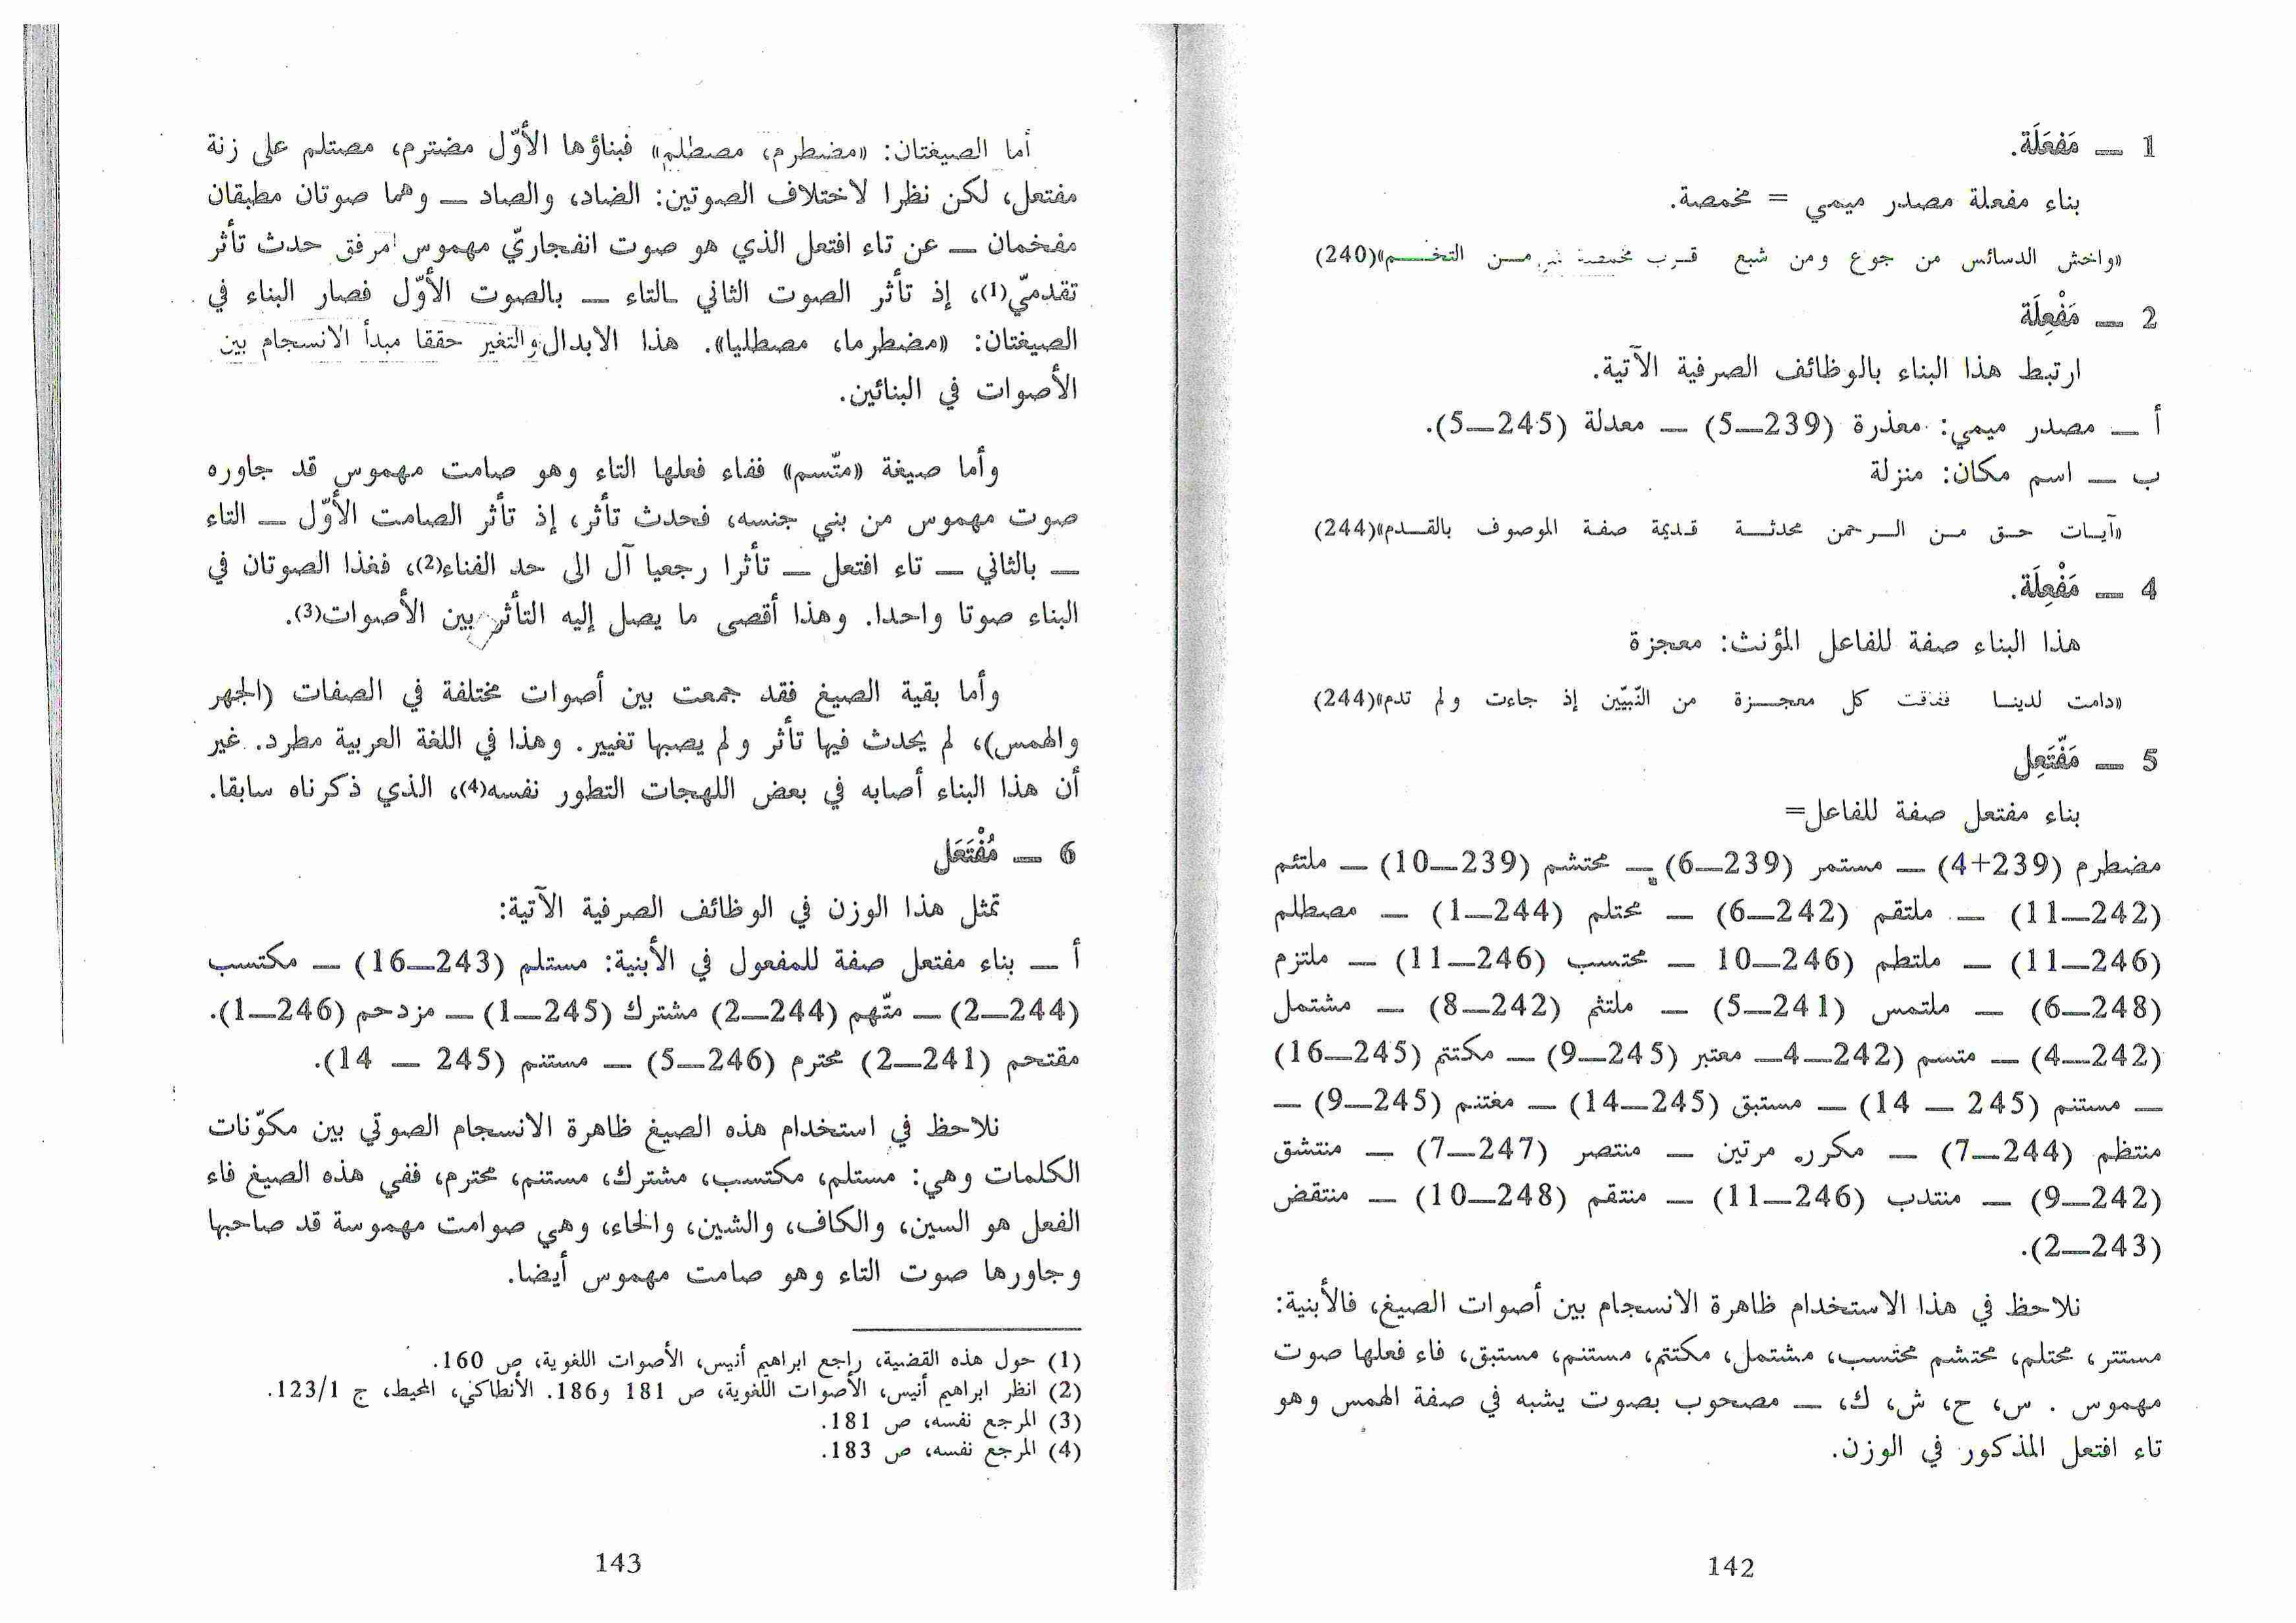 1 — مَفعَلَة.
بناء مفعلة مصدر ميمي = مخمصة.
«واخش الدسائس من جوع ومن شبع فرب مخمصة شر من التخم»(240)
2 — مَفْعِلَة
ارتبط هذا البناء بالوظائف الصرفية الآتية.
أ — مصدر ميمي: معذرة (239—5) — معدلة (245—5).
ب — اسم مكان: منزلة
«آيات حق من الرحمن محدثة قديمة صفة الموصوف بالقدم»(244)
4 — مَفْعِلَة.
هذا البناء صفة للفاعل المؤنث: معجزة
«دامت لدينا ففاقت كل معجزة من النّبيّين إذ جاءت ولم تدم»(244)
5 — مَفّتَعِل
بناء مفتعل صفة للفاعل=
مضطرم (239+4) — مستمر (239—6) — محتشم (239—10) — ملتئم
(242—11) — ملتقم (242—6) — محتلم (244—1) — مصطلم
(246—11) — ملتطم (246—10 — محتسب (246—11) — ملتزم
(248—6) — ملتمس (241—5) — ملتثم (242—8) — مشتمل
(242—4) — متسم (242—4— معتبر (245—9) — مكتتم (245—16)
— مستنم (245 — 14) — مستبق (245—14) — مغتنم (245—9) —
منتظم (244—7) — مكرر مرتين — منتصر (247—7) — منتشق
(242—9) — منتدب (246—11) — منتقم (248—10) — منتقض
(243—2).
نلاحظ في هذا الاستخدام ظاهرة الانسجام بين أصوات الصيغ، فالأبنية:
مستتر، محتلم، محتشم محتسب، مشتمل، مكتتم، مستنم، مستبق، فاء فعلها صوت
مهموس . س، ح، ش، ك، — مصحوب بصوت يشبه في صفة الهمس وهو
تاء افتعل المذكور في الوزن.
142
أما الصيغتان: «مضطرم، مصطلم» فبناؤها الأوّل مضترم، مصتلم على زنة
مفتعل، لكن نظرا لاختلاف الصوتين: الضاد، والصاد — وهما صوتان مطبقان
مفخمان — عن تاء افتعل الذي هو صوت انفجاريّ مهموس مرفق حدث تأثر
تقدميّ(1)، إذ تأثر الصوت الثاني ـالتاء — بالصوت الأوّل فصار البناء في
الصيغتان: «مضطرما، مصطليا». هذا الابدال والتغير حققا مبدأ الانسجام بين
الأصوات في البنائين.
وأما صيغة «متّسم» ففاء فعلها التاء وهو صامت مهموس قد جاوره
صوت مهموس من بني جنسه، فحدث تأثر، إذ تأثر الصامت الأوّل — التاء
— بالثاني — تاء افتعل — تأثرا رجعيا آل الى حد الفناء(2)، فغذا الصوتان في
البناء صوتا واحدا. وهذا أقصى ما يصل إليه التأثر بين الأصوات(3).
وأما بقية الصيغ فقد جمعت بين أصوات مختلفة في الصفات (الجهر
والهمس)، لم يحدث فيها تأثر ولم يصبها تغيير. وهذا في اللغة العربية مطرد. غير
أن هذا البناء أصابه في بعض اللهجات التطور نفسه(4)، الذي ذكرناه سابقا.
6 — مُفْتَعَل
تمثل هذا الوزن في الوظائف الصرفية الآتية:
أ — بناء مفتعل صفة للمفعول في الأبنية: مستلم (243—16) — مكتسب
(244—2) — متّهم (244—2) مشترك (245—1) — مزدحم (246—1).
مقتحم (241—2) محترم (246—5) — مستنم (245 — 14).
نلاحظ في استخدام هذه الصيغ ظاهرة الانسجام الصوتي بين مكوّنات
الكلمات وهي: مستلم، مكتسب، مشترك، مستنم، محترم، ففي هذه الصيغ فاء
الفعل هو السين، والكاف، والشين، والحاء، وهي صوامت مهموسة قد صاحبها
وجاورها صوت التاء وهو صامت مهموس أيضا.
(1) حول هذه القضية، راجع ابراهيم أنيس، الأصوات اللغوية، ص 160.
(2) انظر ابراهيم أنيس، الأصوات اللغوية، ص 181 و186. الأنطاكي، المحيط، ج 123/1.
(3) المرجع نفسه، ص 181.
(4) المرجع نفسه، ص 183.
143